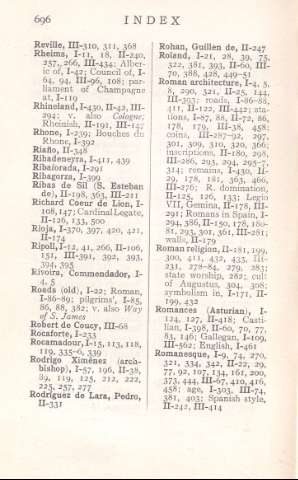 696 INDEX
Reville, III-310, 311, 368
Rheims, I-11, 18, II-240,
257, 266, III-434; Alber-
ic of, I-42; Council of, I-
64, 94, III-96, 108; par-
liament of Champagne
at, I-119
Rhineland, I-430, II-42, III-
294; v. also Cologne;
Rheinish, II-191, III-147
Rhone, I-239; Bouches du
Rhone, I-392
Riaño, II-348
Ribadeneyra, I-411, 439
Ribaforada, I-291
Ribagorza, I-399
Ribas de Sil (S. Esteban
de), II-198, 363, III-211
Richard Coeur de Lion, I-
108, 147; Cardinal Legate,
II-126, 133, 500
Rioja, I-370, 397, 420, 421,
II-174
Ripoll, I-12, 41, 266, II-106,
151, III-391, 392, 393,
394, 395
Rivoira, Commendador, I-
4, 5
Roads (old), I-22; Roman,
I-86-89; pilgrims', I-85,
86, 88, 382; v. also Way
of S. James
Robert de Coucy, III-68
Rocaforte, I-233
Rocamadour, I-15, 113, 118,
119, 335-6, 339
Rodrigo Ximénez (arch-
bishop), I-57, 196, II-38,
89, 119, 125, 212, 222,
225, 257, 277
Rodríguez de Lara, Pedro,
II-331
Rohan, Guillen de, II-247
Roland, I-21, 28, 39, 75,
322, 381, 393, II-60, III-
70, 388, 428, 449-51
Roman architecture, I-4, 5,
8, 290, 321, II-25, 144,
III-393; roads, I-86-88,
411, II-122, III-442; sta-
tions, I-87, 88, II-72, 86,
178, 179, III-38, 458;
coins, III-287-92, 297,
301, 309, 310, 320, 366;
inscriptions, II-180, 298,
III-286, 293, 294, 295-7,
314; remains, I-430, II-
29, 178, 181, 363, 466,
III-276; R. domination,
II-125, 126, 133; Legio
VII, Gemina, II-178, III-
291; Romans in Spain, I-
294, 386, II-150, 178, 180-
81, 293, 301, 361, III-281;
walls, II-179
Roman religion, II-181, 199,
300, 411, 432, 433, III-
231, 278-84, 279, 283;
state worship, 282; cult
of Augustus, 304, 308;
symbolism in, I-171, II-
199, 432
Romances (Asturian), I-
124, 127, II-418; Casti-
lian, I-398, II-60, 70, 77,
83, 146; Gallegan, I-109,
III-562; English, I-461
Romanesque, I-9, 74, 270,
321, 334, 342, II-22, 29,
77, 92, 107, 134, 161, 200,
373, 444, III-67, 410, 416,
458; age, I-303, III-74,
381, 403; Spanish style,
II-242, III-414